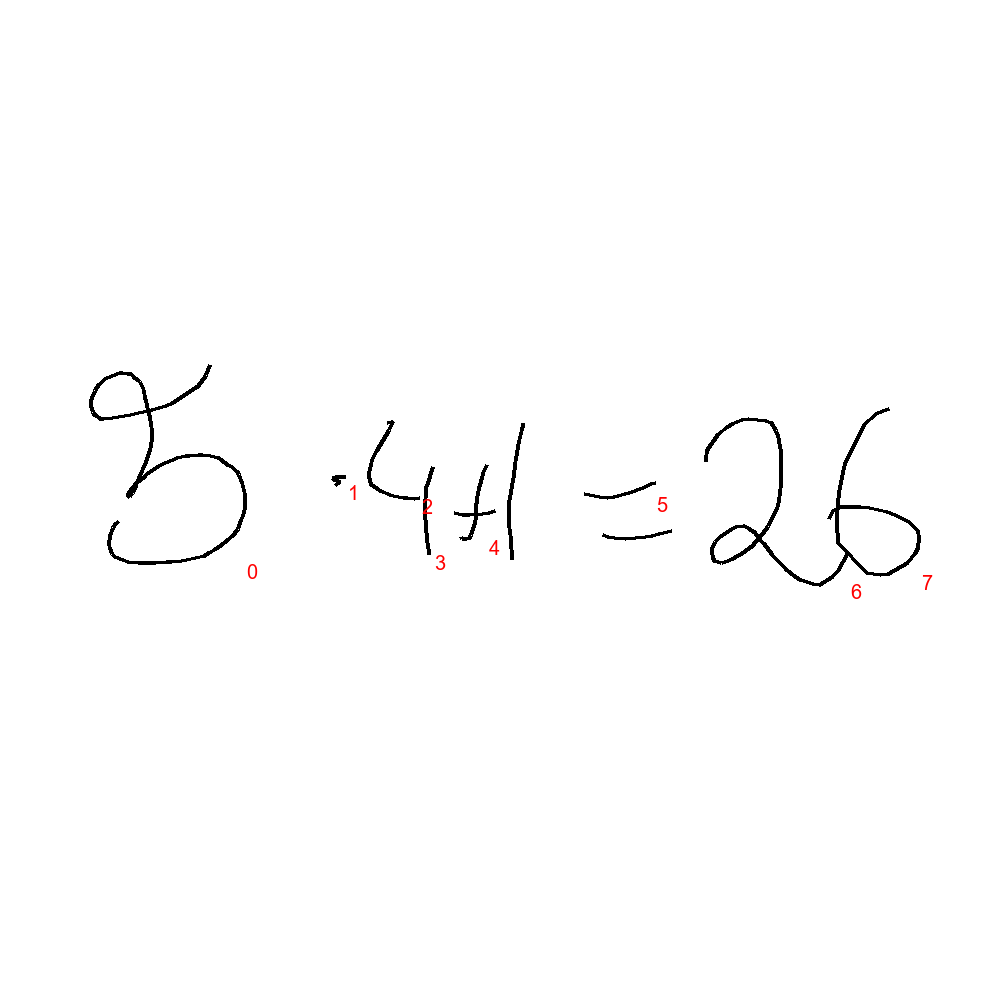 5 · 4 + 1 = 26
0 1 2 3 4 5 6 7